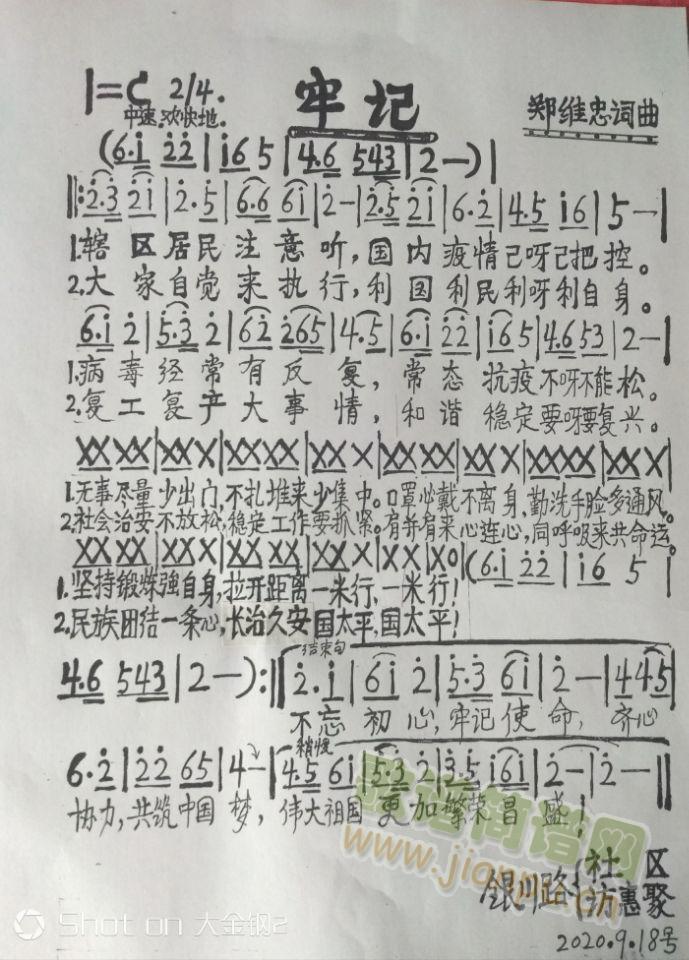 1=C 2/4.
牢记
中速.欢快地.
郑维忠词曲
(6·i 2̇2̇|i65|4·6 543|2—)|
‖:2̇·3̇ 2̇i|2̇·5|6·6 6i|2̇—|2̇·5 2̇i|6·2̇|4·5 i6|5—|
1.辖区居民注意听,国内疫情己呀己把控。
2.大家自觉来执行,利国利民利呀利自身。
6·i 2̇|5·3̇ 2̇|62̇ 2̇65|4·5|6·i 2̇2̇|i65|4·6 53|2—|
1.病毒经常有反复,常态抗疫不呀不能松。
2.复工复产大事情,和谐稳定要呀要复兴。
XX XX|XX X|XX XX|XX X|XX XX|XX X|XXXX|XX X|
1.无事尽量少出门,不扎堆来少集中。口罩必戴不离身,勤洗手脸多通风。
2.社会治安不放松,稳定工作要抓紧。肩并肩来心连心,同呼吸来共命运。
XX XX|XX X|XX XX|XX X|XX X0|(6·i 2̇2̇|i65|
1.坚持锻炼强自身,拉开距离一米行,一米行!
2.民族团结一条心,长治久安国太平,国太平!
结束句
4·6 543|2—):‖2̇·i|6i 2̇|5·3̇ 6i|2̇—|4 45|
不忘初心,牢记使命,齐心
稍慢
6·2̇|2̇2̇ 65|4—|4·5 6i|5·3̇ 2̇|3̇·5 i6i|2̇—|2̇—‖
协力,共筑中国梦,伟大祖国更加繁荣昌盛!
银川路{社区
访惠聚
2020.9.18号
Shot on 大金钢2